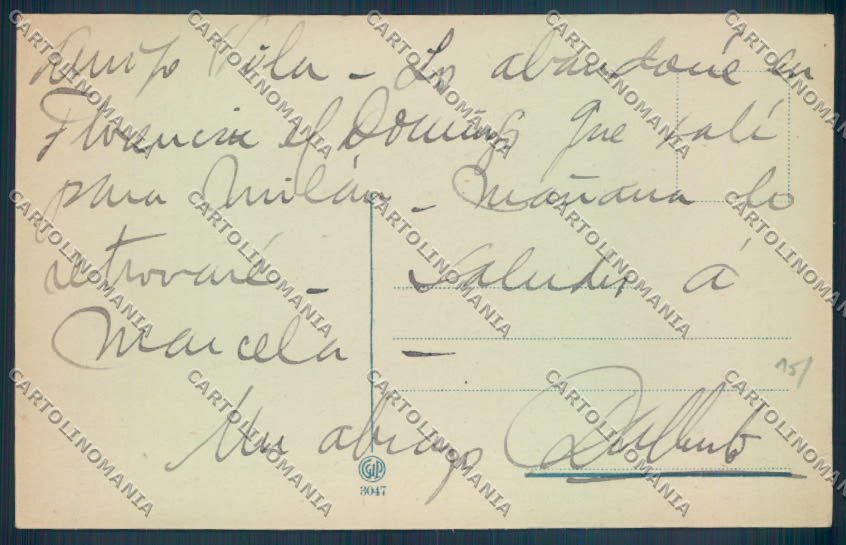 Amigo Vila - Lo abandoné en
Florencia el Domingo que salí
para Milán - Mañana lo
retrovaré - Saludos á
Marcela -
Un abrazo
GIP
3047
15/
CARTOLINOMANIA